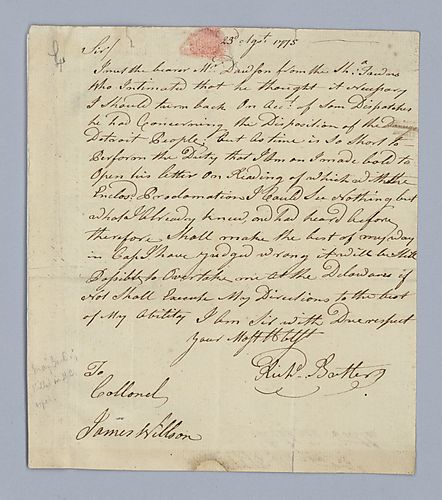 23d Agst. 1775
Sir/
I met the bearer Mr. Dawson from the Sh. Towns
Who Intimated that he thought it Necessary
I Should turn back On Acct. of Som Dispatches
he had Concerning the Disposition of the
Detroit People, but as time is So Short to
Perform the Duty that I Am on I made bold to
Open his letter On Reading of which with the
Enclosd. Proclamations I Could See Nothing but
what I Already knew, and had heard before
therefore Shall make the best of my way
in Case I have judged wrong it will be Still
Possible to Overtake me At the Delawares if
Not Shall Execute My Directions to the best
of My Ability I Am Sir with Due respect
Your Most Hble
Richd. Butler
To
Collonel
James Willson